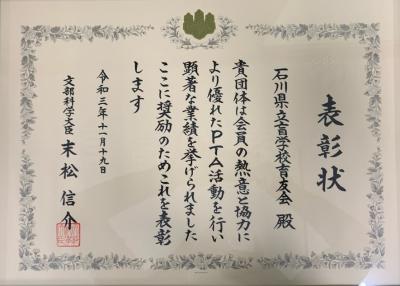 表彰状
石川県立盲学校育友会 殿
貴団体は会員の熱意と協力に
より優れたPTA活動を行い
顕著な業績を挙げられました
ここに奨励のためこれを表彰
します
令和三年十一月十九日
文部科学大臣 末松信介